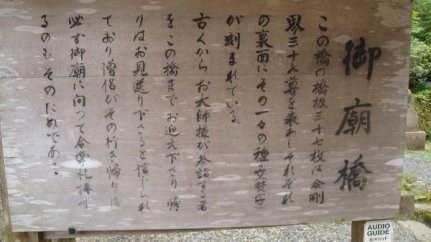 御廟橋
この橋の橋板三十七枚は金剛
界三十七尊を表わしそれぞれ
の裏面にその一々の種子梵字
が刻まれている。
古くからお大師様が参詣する者
をこの橋までお迎え下さり帰
りはお見送り下さると信じられ
ており僧侶がその行き帰りに
必ず御廟に向って合掌礼拝す
るのもそのためである。
AUDIO
GUIDE